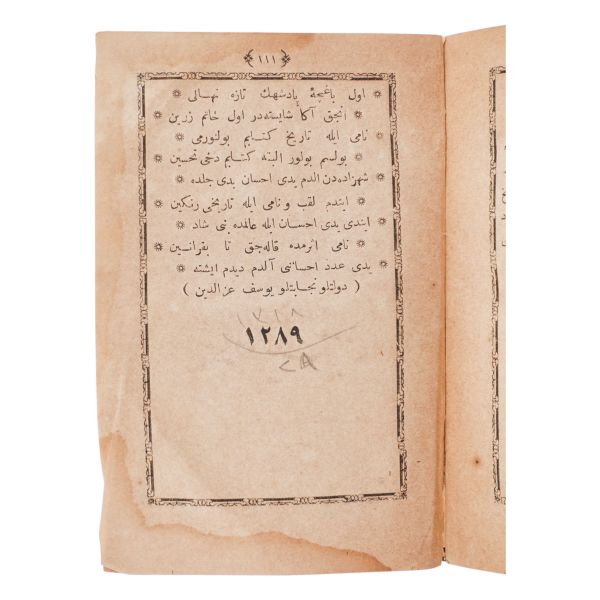 ١١١
اول باغچهٔ پادشهك تازه نهالی
❋ انجق آكا شایسته در اول خاتم زرین ❋
نامی ایله تاریخ كتابم بولنورمی ❋
❋ بولسم بولور البته كتابم دخی تحسین
شهزاده دن الدم یدی احسان یدی جلده ❋
❋ ایتدم لقب و نامی ایله تاریخی رنكین
ایتدی یدی احسان ایله عالمده بنی شاد ❋
❋ نامی اثرمده قاله جق تا بقرانسین
یدی عدد احسانی آلدم دیدم ایشته ❋
( دولتلو نجابتلو یوسف عزالدین )
١٢٨٩